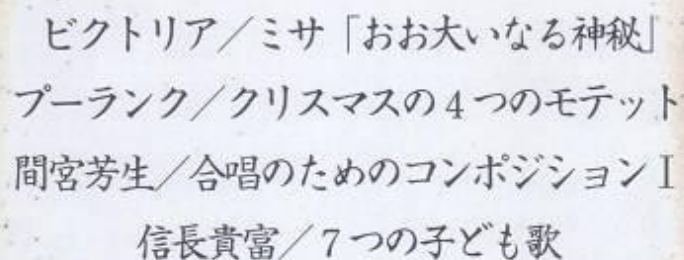 ビクトリア／ミサ「おお大いなる神秘」
プーランク／クリスマスの4つのモテット
間宮芳生／合唱のためのコンポジションⅠ
信長貴富／7つの子ども歌